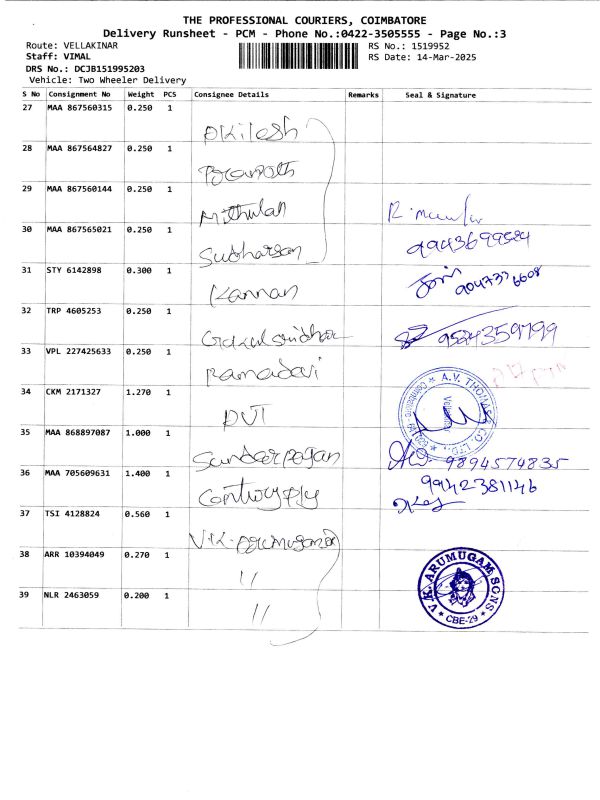 THE PROFESSIONAL COURIERS, COIMBATORE
Delivery Runsheet - PCM - Phone No.:0422-3505555 - Page No.:3
Route: VELLAKINAR RS No.: 1519952
Staff: VIMAL RS Date: 14-Mar-2025
DRS No.: DCJB151995203
Vehicle: Two Wheeler Delivery
S No Consignment No Weight PCS Consignee Details Remarks Seal & Signature
27 MAA 867560315 0.250 1
28 MAA 867564827 0.250 1
29 MAA 867560144 0.250 1 Mithulan
30 MAA 867565021 0.250 1 9943699584
31 STY 6142898 0.300 1 Kannan
32 TRP 4605253 0.250 1 9524359799
33 VPL 227425633 0.250 1 Ramadevi
34 CKM 2171327 1.270 1 A.V. THOMAS & CO. LTD.
35 MAA 868897087 1.000 1 9894574835
36 MAA 705609631 1.400 1 9942381146
37 TSI 4128824 0.560 1
38 ARR 10394049 0.270 1 " V.K. ARUMUGAM SONS
39 NLR 2463059 0.200 1 " CBE-29